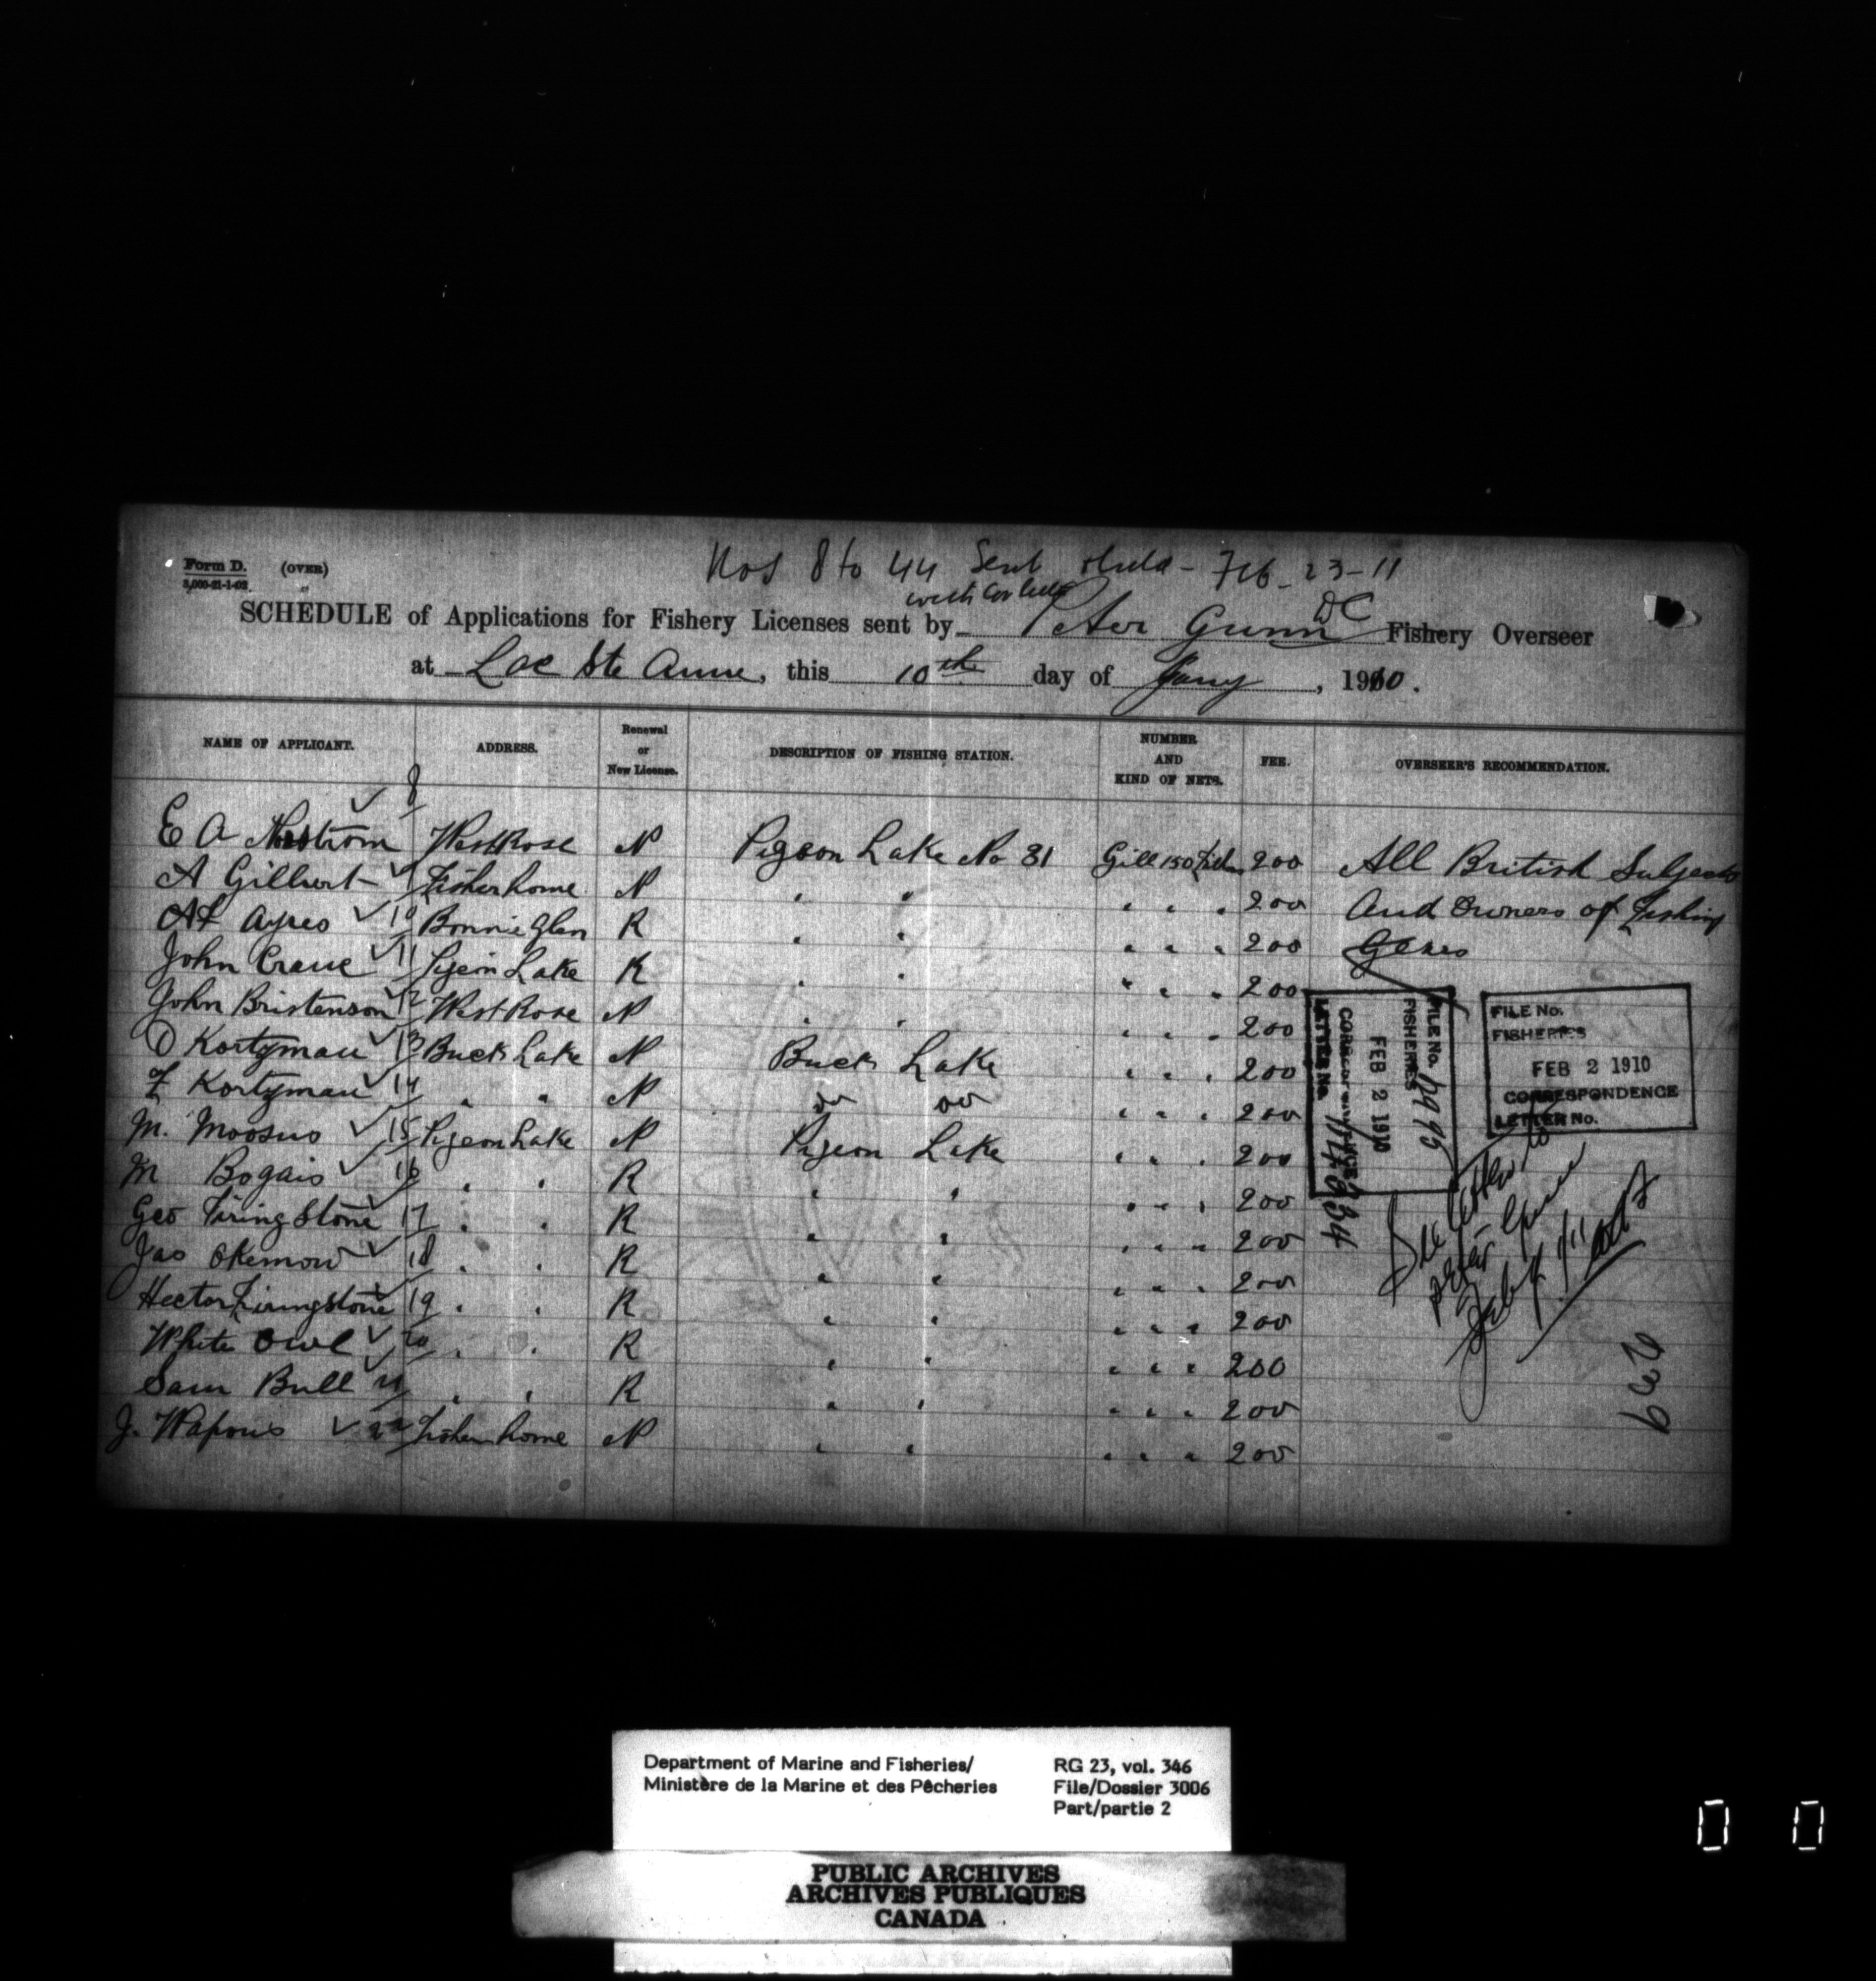 Form D. (OVER)
3,000-21-1-02.
Nos 8 to 44 Sent Feb-23-11
with
SCHEDULE of Applications for Fishery Licenses sent by Peter Gunn DC Fishery Overseer
at Lac Ste Anne, this 10th day of Jany, 1910.
NAME OF APPLICANT. ADDRESS. Renewal or New License. DESCRIPTION OF FISHING STATION. NUMBER AND KIND OF NETS. FEE. OVERSEER'S RECOMMENDATION.
E A ✓ 8 WestRose N Pigeon Lake No 31 Gill 150 200 All British Subjects
A Gilbert ✓ 9 Fisherhome N " " " " " 200 And Owners of Fishing
Ayres ✓ 10 Bonnie Glen R " " " " " 200 Gears
John Crane ✓ 11 Pigeon Lake R " " " " " 200
John Bristenson ✓ 12 WestRose N " " " " " 200
O Kortzman ✓ 13 Buck Lake N Buck Lake " " " 200
F Kortzman ✓ 14 " " N do do " " " 200
M. Moosus ✓ 15 Pigeon Lake N Pigeon Lake " " " 200
M Bogais ✓ 16 " " R " " " " " 200
Geo Firingstone ✓ 17 " " R " " " " " 200
Jas Okemow ✓ 18 " " R " " " " " 200
Hector Firingstone ✓ 19 " " R " " " " " 200
White Owl ✓ 20 " " R " " " " " 200
Sam Bull ✓ 21 " " R " " " " " 200
J. Wapous ✓ 22 Fisherhome N " " " " " 200
FILE No.
FISHERIES
FEB 2 1910
CORRESPONDENCE
LETTER No.
FILE No.
FISHERIES
FEB 2 1910
CORRESPONDENCE
LETTER No.
See letter to
Peter Gunn
Feby
Department of Marine and Fisheries/
Ministère de la Marine et des Pêcheries
RG 23, vol. 346
File/Dossier 3006
Part/partie 2
PUBLIC ARCHIVES
ARCHIVES PUBLIQUES
CANADA
0 0